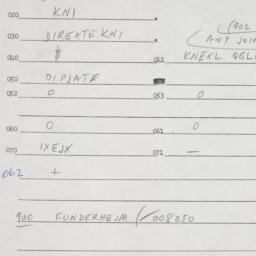 020 KNI .
(902
030 DIREXTE KNI
(ANY JOIN
040 $ 041 KNEXL GGL
050 DIPJATE
052 0 053 0
060 0 061 0
070 IXEJX 071 —
062 +
900 FUNDERHEJM (/008050